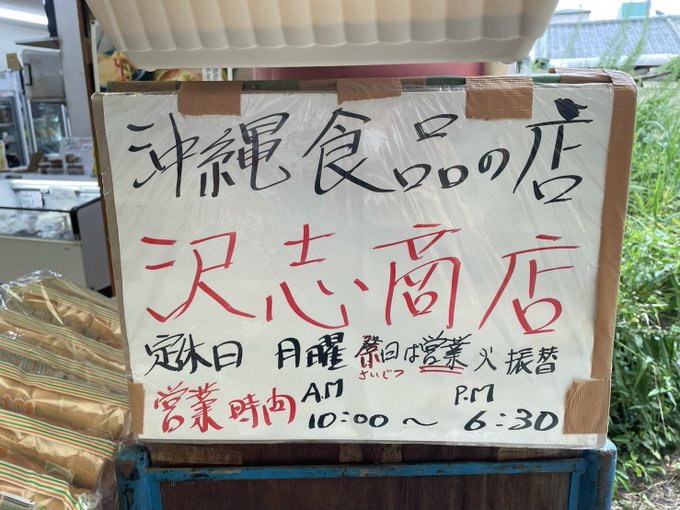 沖縄食品の店
沢志商店
定休日 月曜 祭日は営業 火 振替
さいじつ
営業時間 A.M 10:00～ P.M 6:30